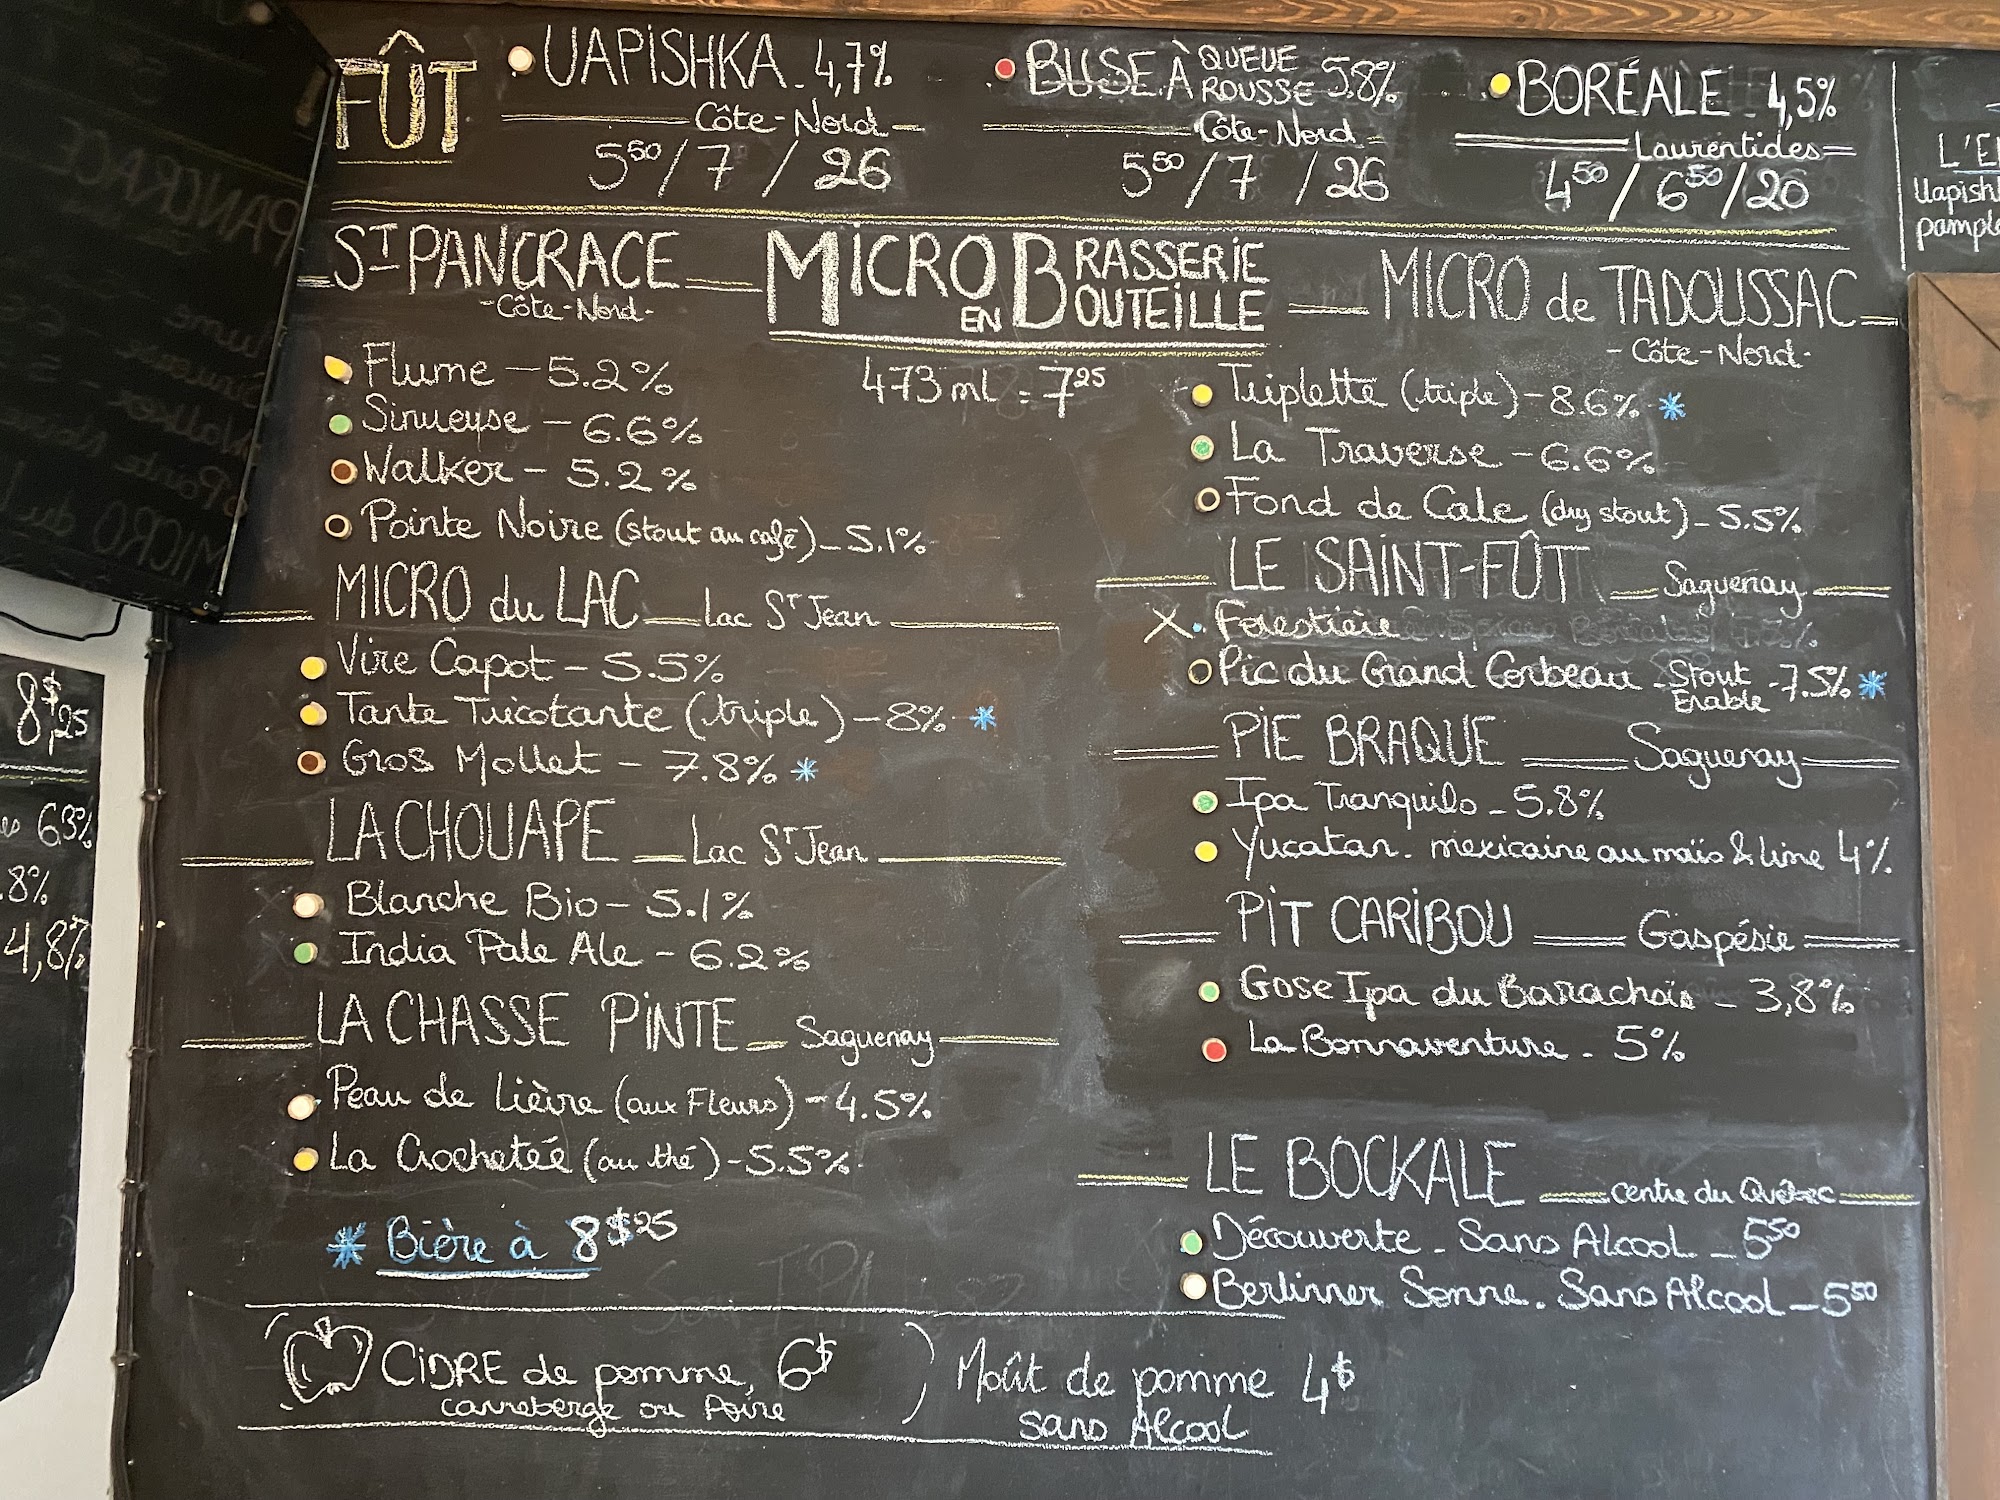 FÛT
UAPISHKA - 4,7%
Côte-Nord
5⁵⁰ / 7 / 26
BUSE À QUEUE ROUSSE 5.8%
Côte-Nord
5⁵⁰ / 7 / 26
BORÉALE 4,5%
Laurentides
4⁵⁰ / 6⁵⁰ / 20
L'E
Uapish
pample
ST PANCRACE
- Côte-Nord -
Flume - 5.2%
Sinueuse - 6.6%
Walker - 5.2%
Pointe Noire (stout au café) - 5.1%
MICRO du LAC - Lac ST Jean
Vire Capot - 5.5%
Tante Tricotante (triple) - 8% *
Gros Mollet - 7.8% *
LA CHOUAPE - Lac ST Jean
Blanche Bio - 5.1%
India Pale Ale - 6.2%
LA CHASSE PINTE - Saguenay
Peau de Lièvre (aux Fleurs) - 4.5%
La Crocheteé (au thé) - 5.5%
* Bière à 8$25
MICRO BRASSERIE
EN BOUTEILLE
473 ml = 7²⁵
MICRO de TADOUSSAC
- Côte-Nord -
Triplette (triple) - 8.6% *
La Traverse - 6.6%
Fond de Cale (dry stout) - 5.5%
LE SAINT-FÛT - Saguenay
X Forestière
Pic du Grand Corbeau - Stout Érable - 7.5% *
PIE BRAQUE - Saguenay
Ipa Tranquilo - 5.8%
Yucatan - mexicaine au maïs & lime 4%
PIT CARIBOU - Gaspésie
Gose Ipa du Barachois - 3,8%
La Bonnaventure - 5%
LE BOCKALE - centre du Québec
Découverte - Sans Alcool - 5⁵⁰
Berlinner Sonne - Sans Alcool - 5⁵⁰
CIDRE de pomme, 6$
canneberge ou Poire
Moût de pomme 4$
sans Alcool
8$,25
63%
.8%
4,8%